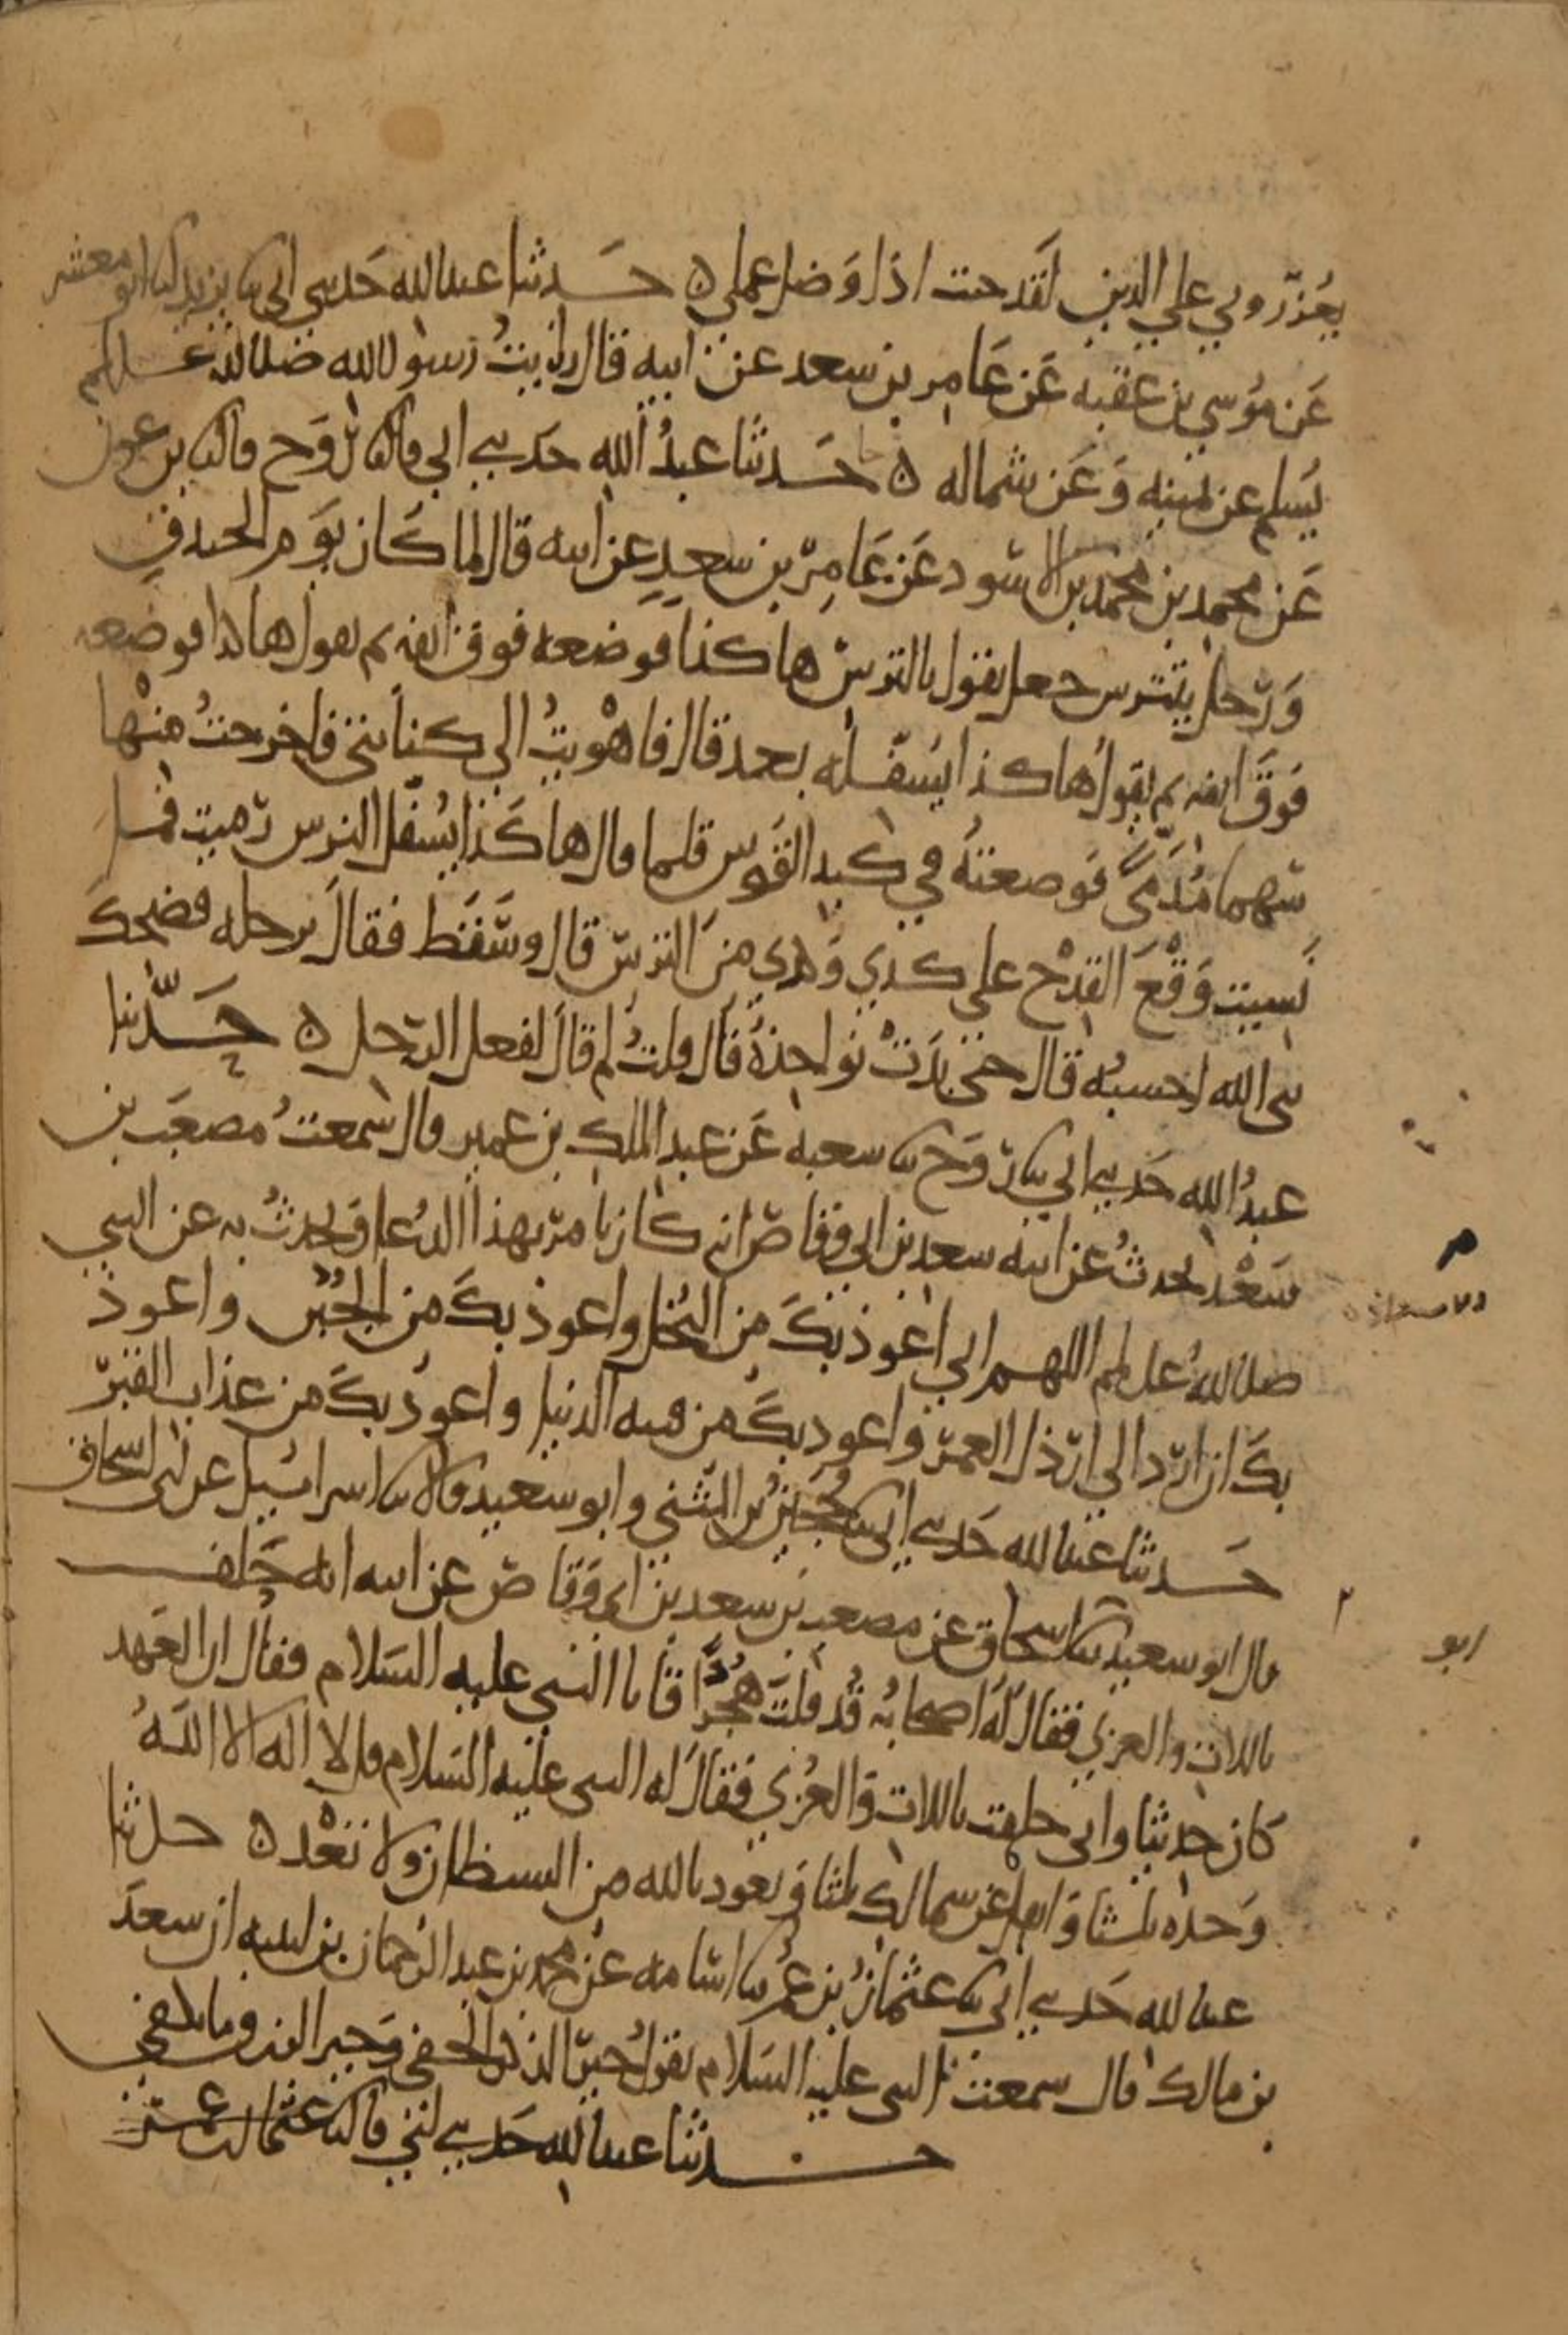 يعزروني على الدين لقد خبت اذا وضل عملي ه حدثنا عبد الله حدثني ابي نا يزيد انا ابو معشر
عن موسى بن عقبه عن عامر بن سعد عن ابيه قال رايت رسول الله صلى الله عليه وسلم
يسلم عن يمينه وعن شماله ه حدثنا عبد الله حدثني ابي قال نا روح قال نا بن عون
عن محمد بن محمد بن الاسود عن عامر بن سعد عن ابيه قال لما كان يوم الخندق
ورجل يتترس جعل يقول بالترس هاكذا فوضعه فوق انفه ثم يقول هاكذا فوضعه
فوق انفه ثم يقول هاكذا يسفله بعد قال فاهويت الى كنانتي فاخرجت منها
سهما مدمى فوضعته في كبد القوس فلما قال هاكذا يسفل الترس رميت فما
نسيت وقع القدح على كذي وكذى من الترس قال وسقط فقال برجله فضحك
نبي الله احسبه قال حتى بدت نواجذه قال قلت لم قال لفعل الرجل ه حدثنا
عبد الله حدثني ابي نا روح نا شعبه عن عبد الملك بن عمير قال سمعت مصعب بن
سعد يحدث عن ابيه سعد بن ابي وقاص انه كان يامر بهذا الدعا ويحدث به عن النبي
صلى الله عليه وسلم اللهم اني اعوذ بك من البخل واعوذ بك من الجبن واعوذ
بك ان ارد الى ارذل العمر واعوذ بك من فتنه الدنيا واعوذ بك من عذاب القبر
حدثنا عبد الله حدثني ابي نا حجين بن المثنى وابو سعيد قالا نا اسرائيل عن ابي اسحاق
قال ابو سعيد نا اسحاق عن مصعب بن سعد بن ابي وقاص عن ابيه انه حلف
باللات والعزى فقال له اصحابه قد قلت هجرا فاتا النبي عليه السلام فقال ان العهد
كان حديثا واني حلفت باللات والعزى فقال له النبي عليه السلام قل لا اله الا الله
وحده ثلثا واتفل عن شمالك ثلثا وتعوذ بالله من الشيطان ولا تعد ه حدثنا
عبد الله حدثني ابي نا عثمان بن عمر نا اسامه عن محمد بن عبد الرحمان بن لبيبه ان سعد
بن مالك قال سمعت النبي عليه السلام يقول خير الذكر الخفي وخير الرزق ما يكفي
حدثنا عبد الله حدثني ابي قال نا عثمان بن عمر
م
الاستعاذه
ابو